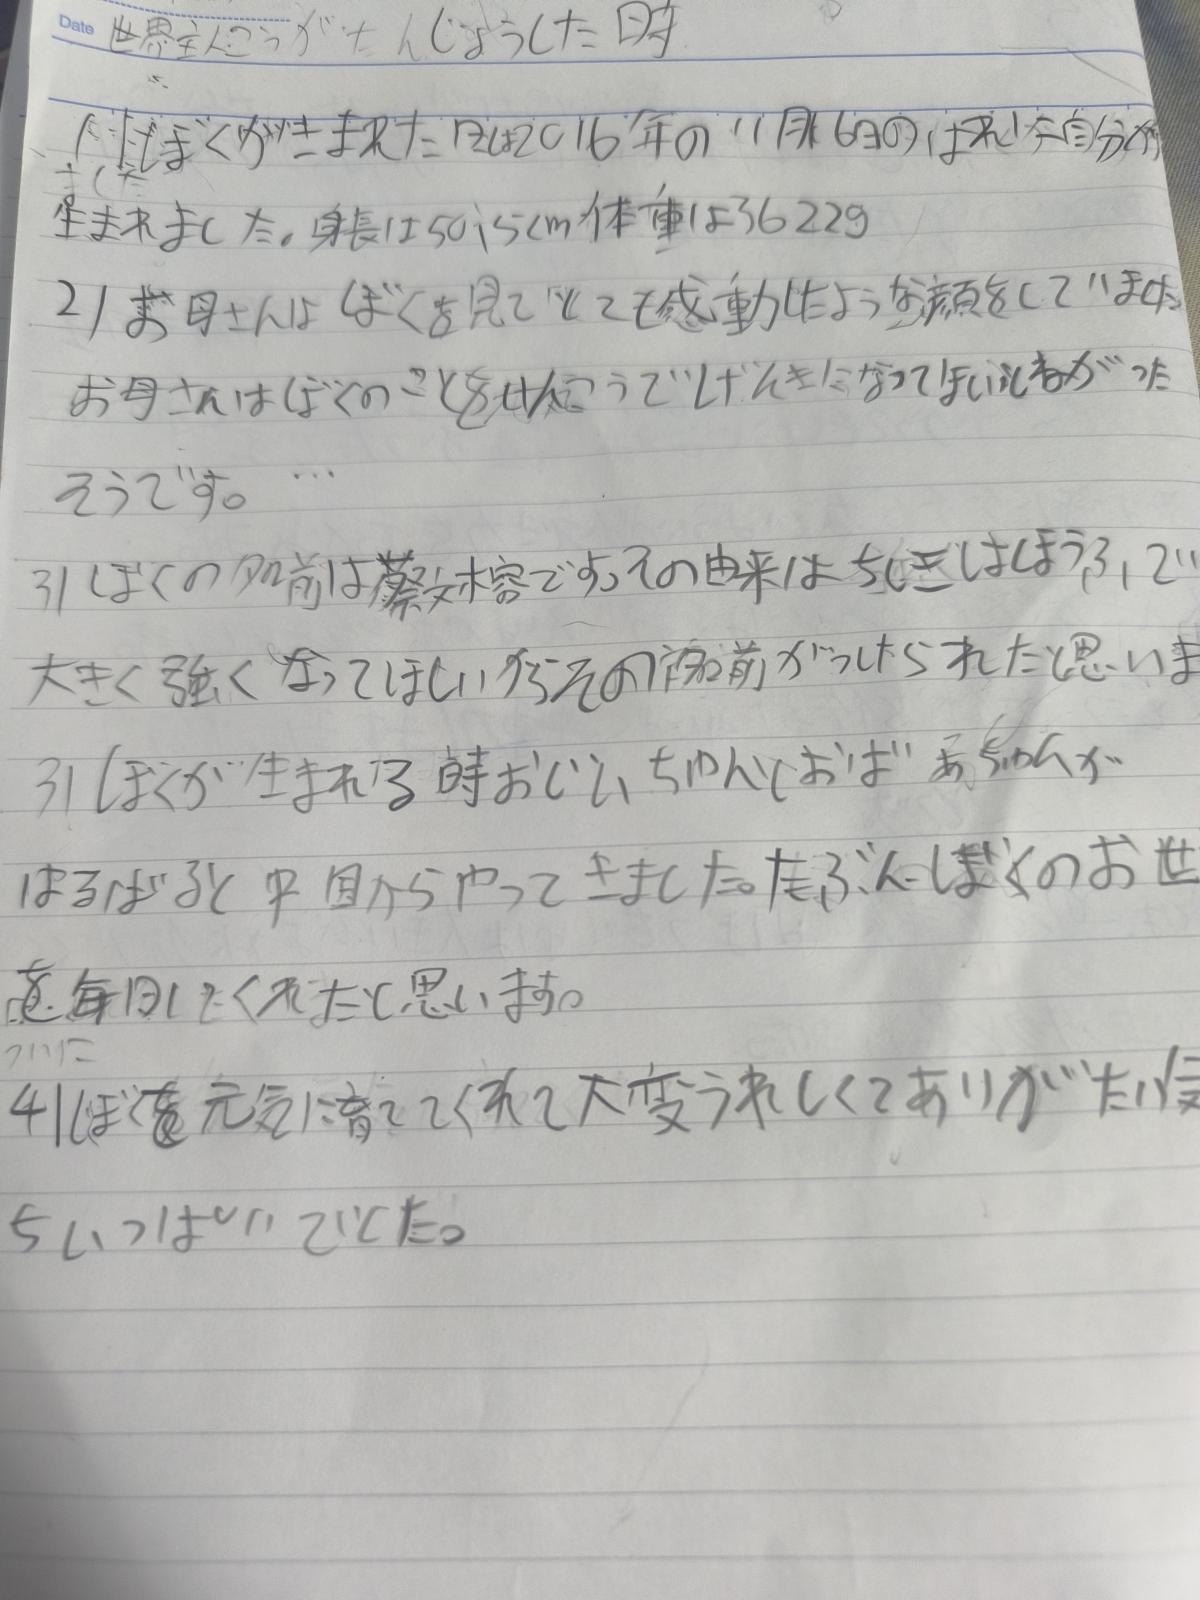 Date 世界主人こうがたんじょうした時
ぼくがきまれた日は2016年の11月16日のはれした自分が
生まれました。身長は50,5cm体重は3622g
2) お母さんはぼくを見てとても感動したような顔をしていました
お母さんはぼくのことをけんこうでげんきになってほしいとねがった
そうです。…
3) ぼくの名前は蔡文榕です。その由来はちしきはほうふで
大きく強くなってほしいからその名前がつけられたと思いま
3) ぼくが生まれる時おじいちゃんとおばあちゃんが
はるばると中国からやってきました。たぶんぼくのお世
を毎日してくれたと思います。
ついに
4) ぼくを元気に育ててくれて大変うれしくてありがたい気
ちいっぱいでした。